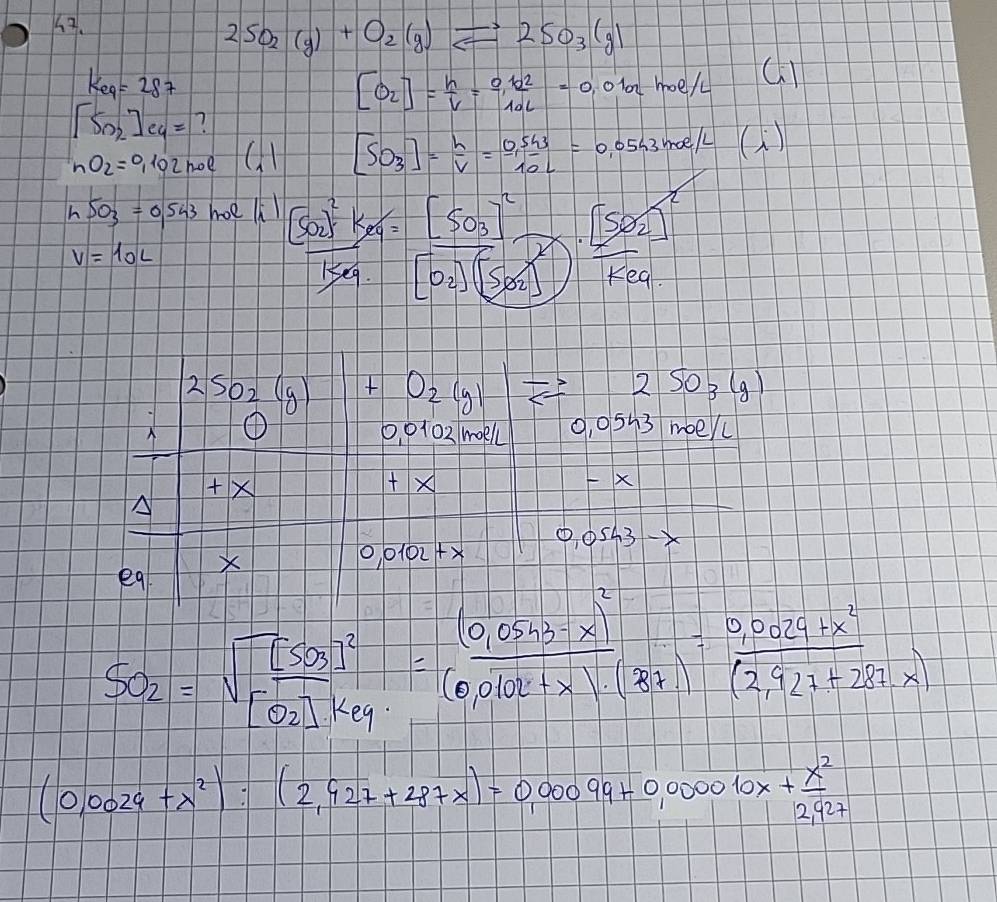 47.
2SO₂ (g) + O₂ (g) ⇌ 2SO₃ (g)
Keq = 287
[SO₂]eq = ?
nO₂ = 0,102 mol (i)
nSO₃ = 0,543 mol (i)
V = 10L
[O₂] = n/V = 0,102/10L = 0,0102 mol/L (i)
[SO₃] = n/V = 0,543/10L = 0,0543 mol/L (i)
[SO₂]² Keq / Keq. = [SO₃]² / [O₂][SO₂]² · [SO₂]² / Keq.
2SO₂ (g) | + O₂ (g) | ⇌ 2 SO₃ (g)
i 0 0,0102 mol/L 0,0543 mol/L
Δ +x +x -x
eq. x 0,0102+x 0,0543-x
SO₂ = √[SO₃]² / [O₂].Keq. = (0,0543-x)² / (0,0102+x).(287) = 0,0029+x² / (2,927+287.x)
(0,0029+x²) : (2,927+287x) = 0,00099+0,000010x + x²/2,927